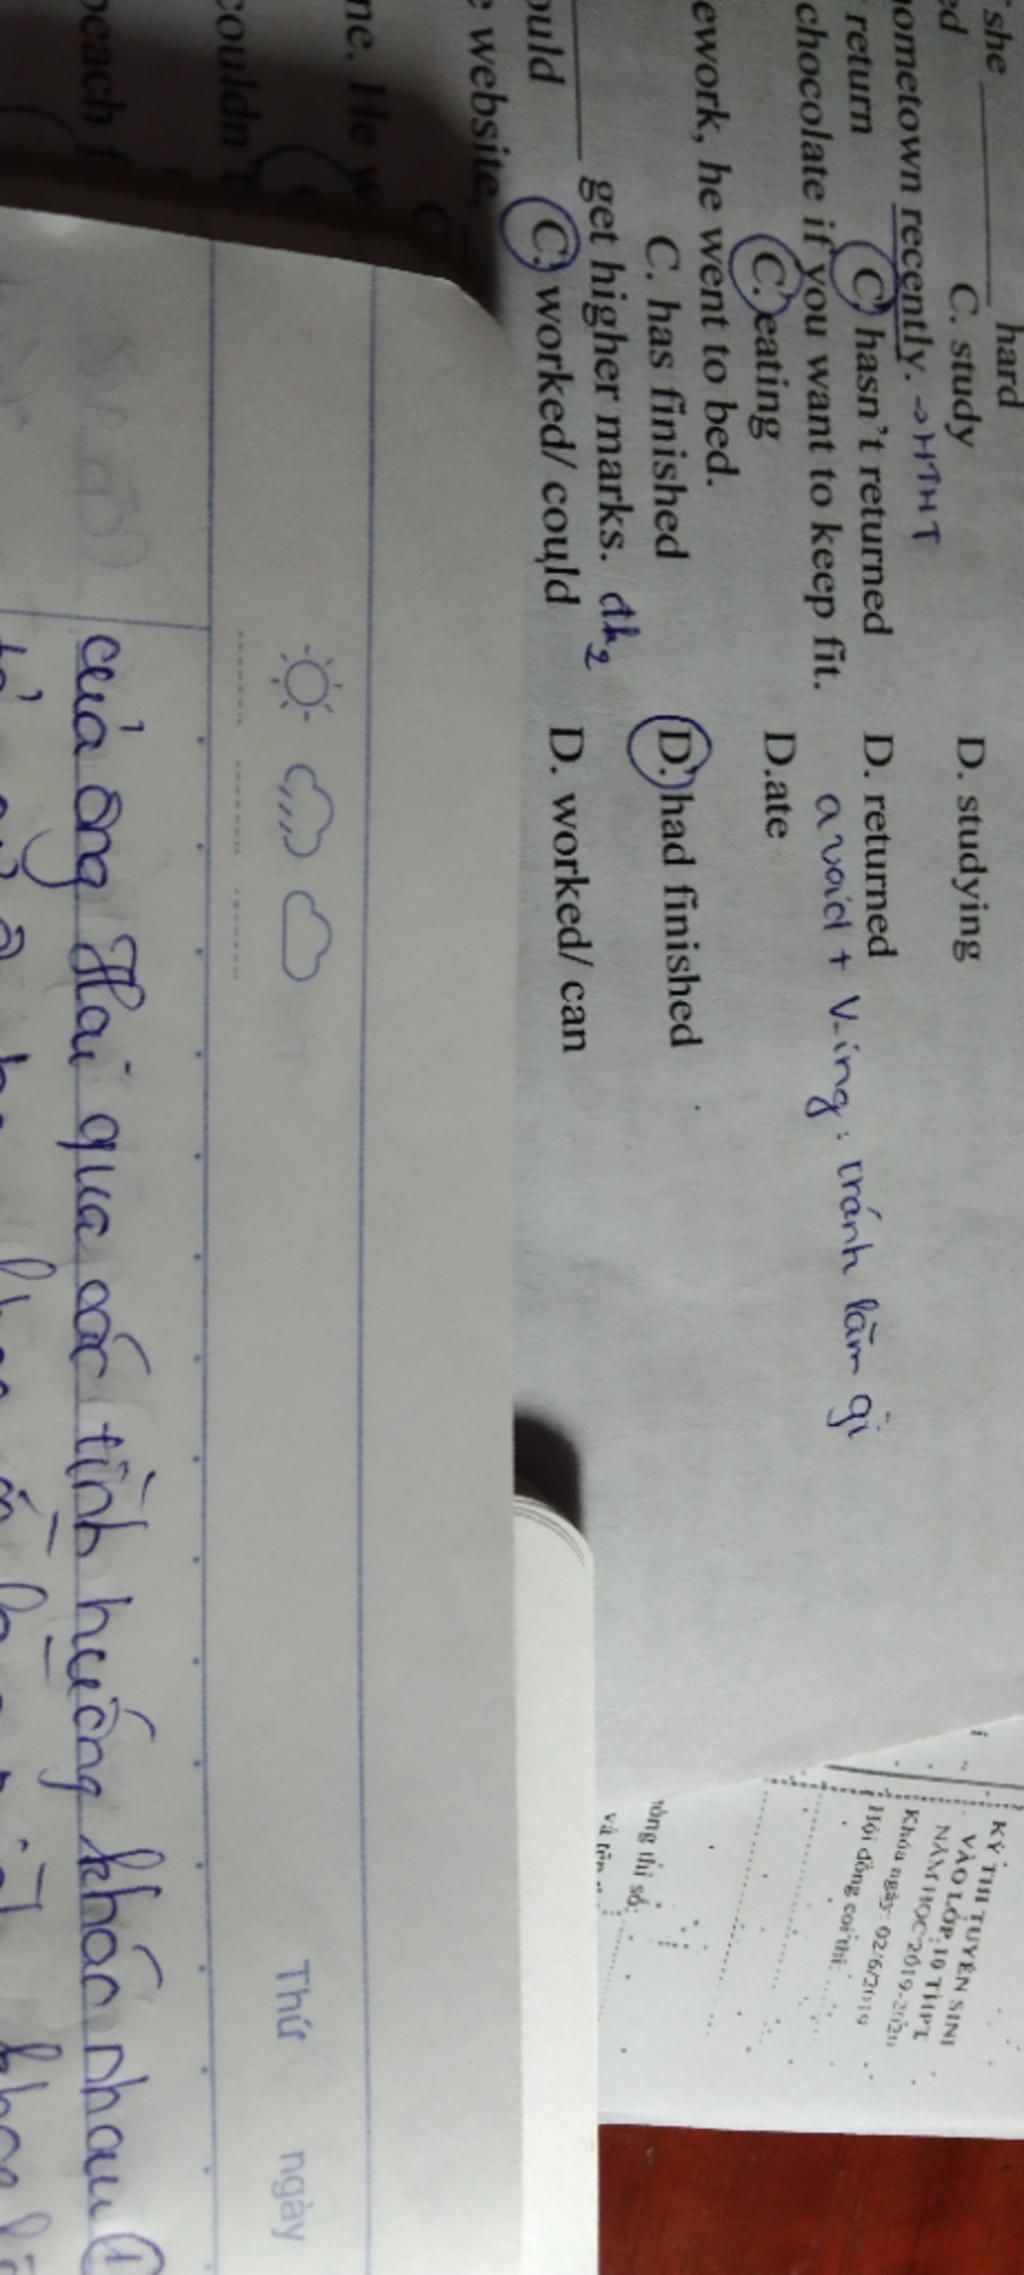 she ________ hard
ed C. study D. studying
hometown recently. → HTHT
return C. hasn't returned D. returned
chocolate if you want to keep fit. avoid + V-ing: tránh làm gì
C. eating D.ate
ework, he went to bed.
C. has finished D. had finished
________ get higher marks. đk2
ould C. worked/ could D. worked/ can
e website,
C
ne. He w
couldn't
beach f
KỲ THI TUYỂN SINH
VÀO LỚP 10 THPT
NĂM HỌC 2019-2020
Khóa ngày 02/6/2019
Hội đồng coi thi:
òng thi số:
và tên
Thứ ngày
của ông Hai qua các tình huống khác nhau ①